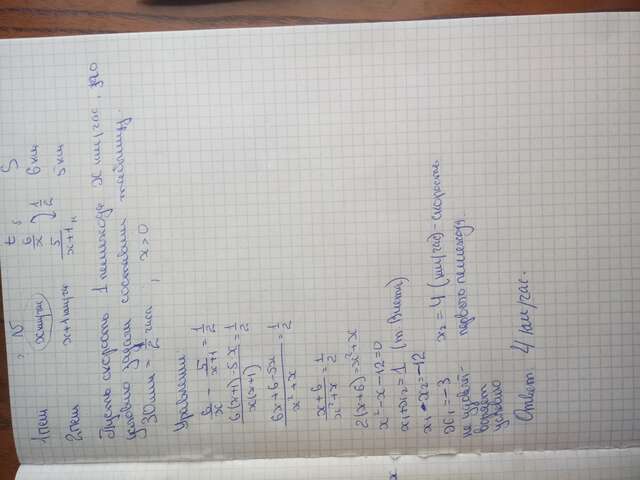 V t S
1 пеш x км/час 6/x 1/2 6 км
2 пеш x+1 км/час 5/x+1 5 км
Пусть скорость 1 пешехода x км/час, по
условию задачи составим таблицу.
30 мин = 1/2 часа, x>0
Уравнение:
6/x - 5/x+1 = 1/2
6(x+1)-5x/x(x+1) = 1/2
6x+6-5x/x²+x = 1/2
x+6/x²+x = 1/2
2(x+6)=x²+x
x²-x-12=0
x₁+x₂=1 (т. Виета)
x₁·x₂=-12
x₁=-3 x₂=4 (км/час)-скорость
не удовлет- первого пешехода.
воряет
условию
Ответ: 4 км/час.